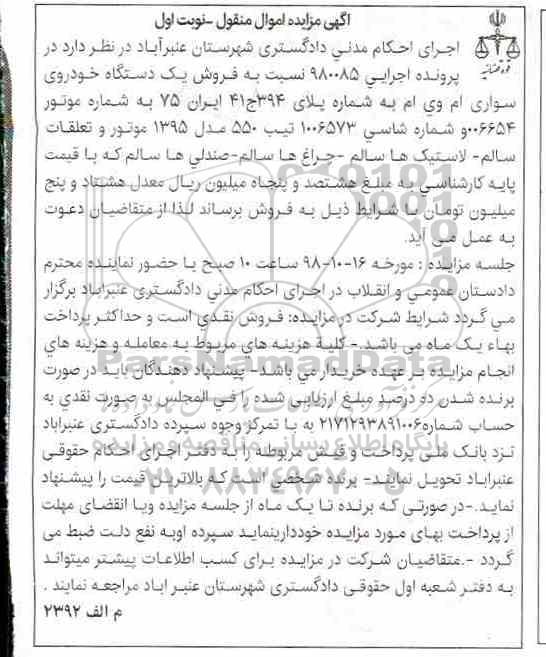 آگهی مزایده اموال منقول -نوبت اول
قوه قضائیه
اجرای احکام مدنی دادگستری شهرستان عنبرآباد در نظر دارد در
پرونده اجرایی ۹۸۰۰۸۵ نسبت به فروش یک دستگاه خودروی
سواری ام وی ام به شماره پلای ۳۹۴ج۴۱ ایران ۷۵ به شماره موتور
۰۰۶۶۵۴و شماره شاسی ۱۰۰۶۵۷۳ تیب ۵۵۰ مدل ۱۳۹۵ موتور و تعلقات
سالم- لاستیک ها سالم -چراغ ها سالم-صندلی ها سالم که با قیمت
پایه کارشناسی به مبلغ هشتصد و پنجاه میلیون ریال معدل هشتاد و پنج
میلیون تومان با شرایط ذیل به فروش برساند لذا از متقاضیان دعوت
به عمل می آید.
جلسه مزایده : مورخه ۱۶-۱۰-۹۸ ساعت ۱۰ صبح با حضور نماینده محترم
دادستان عمومی و انقلاب در اجرای احکام مدنی دادگستری عنبراباد برگزار
می گردد شرایط شرکت در مزایده: فروش نقدی است و حداکثر پرداخت
بهاء یک ماه می باشد.- کلیه هزینه های مربوط به معامله و هزینه های
انجام مزایده بر عهده خریدار می باشد- پیشنهاد دهندگان باید در صورت
برنده شدن ده درصد مبلغ ارزیابی شده را فی المجلس به صورت نقدی به
حساب شماره۲۱۷۱۲۹۳۸۹۱۰۰۶ به با تمرکز وجوه سپرده دادگستری عنبراباد
نزد بانک ملی پرداخت و فیش مربوطه را به دفتر اجرای احکام حقوقی
عنبراباد تحویل نمایند- برنده شخصی است که بالاترین قیمت را پیشنهاد
نماید.-در صورتی که برنده تا یک ماه از جلسه مزایده ویا انقضای مهلت
از پرداخت بهای مورد مزایده خودداریینماید سپرده اوبه نفع دلت ضبط می
گردد -.متقاضیان شرکت در مزایده برای کسب اطلاعات پیشتر میتواند
به دفتر شعبه اول حقوقی دادگستری شهرستان عنبر اباد مراجعه نمایند .
م الف ۲۳۹۲
ParsNamadData
پایگاه اطلاع رسانی مناقصه و مزایده
۰۲۱-۸۸۳۴۹۶۷۰-۵